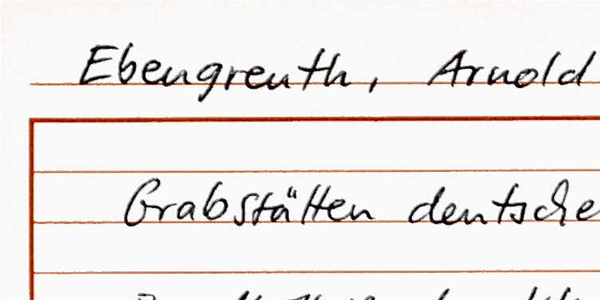 Ebengreuth, Arnold
Grabstätten deutsche